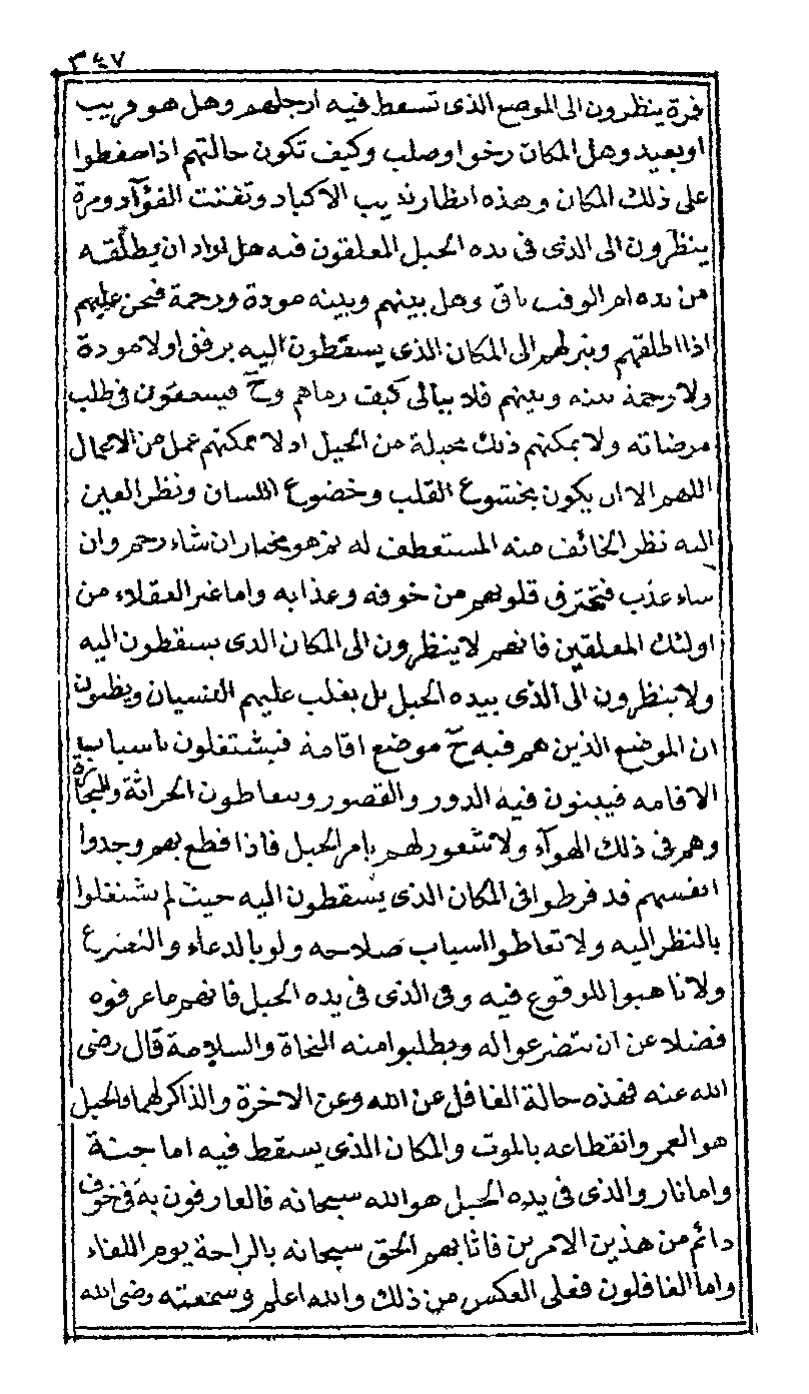 ٣٤٧
فمرة ينظرون الى الموضع الذى تسقط فيه ارجلهم وهل هو قريب
او بعيد وهل المكان رخوا وصلب وكيف تكون حالتهم اذا سقطوا
على ذلك المكان وهذه انظار تذيب الاكباد وتفتت الفؤآد ومرة
ينظرون الى الذى فى يده الحبل المعلقون فيه هل اراد ان يطلقه
من يده ام الوقت باق وهل بينهم وبينه مودة ورحمة فيحن عليهم
اذا اطلقهم وينزلهم الى المكان الذى يسقطون اليه برفق او لا مودة
ولا رحمة بينه وبينهم فلا يبالى كيف رماهم وحٓ فيسعون فى طلب
مرضاته ولا يمكنهم ذلك بحيلة من الحيل اذ لا يمكنهم عمل من الاعمال
اللهم الا ان يكون بخشوع القلب وخضوع اللسان ونظر العين
اليه نظر الخائف منه المستعطف له ثم هو مخير ان شاء رحم وان
شاء عذب فتحترق قلوبهم من خوفه وعذابه واما غير العقلاء من
اولئك المعلقين فانهم لا ينظرون الى المكان الذى يسقطون اليه
ولا ينظرون الى الذى بيده الحبل بل يغلب عليهم النسيان ويظنون
ان الموضع الذين هم فيه حٓ موضع اقامة فيشتغلون باسباب
الاقامه فيبنون فيه الدور والقصور ويتعاطون الحراثة والتجارة
وهم فى ذلك الهوآء ولا شعور لهم بامر الحبل فاذا قطع بهم وجدوا
انفسهم قد فرطوا فى المكان الذى يسقطون اليه حيث لم يشتغلوا
بالنظر اليه ولا تعاطوا اسباب صلاحه ولو بالدعاء والتضرع
ولا تاهبوا للوقوع فيه وفى الذى فى يده الحبل فانهم ما عرفوه
فضلا عن ان يتضرعوا له ويطلبوا منه النجاة والسلامة قال رضى
الله عنه فهذه حالة الغافل عن الله وعن الاخرة والذاكر لهما والحبل
هو العمر وانقطاعه بالموت والمكان الذى يسقط فيه اما جنة
واما نار والذى فى يده الحبل هو الله سبحانه فالعارفون به فى خوف
دائم من هذين الامرين فاثابهم الحق سبحانه بالراحة يوم اللقاء
واما الغافلون فعلى العكس من ذلك والله اعلم وسمعته رضى الله